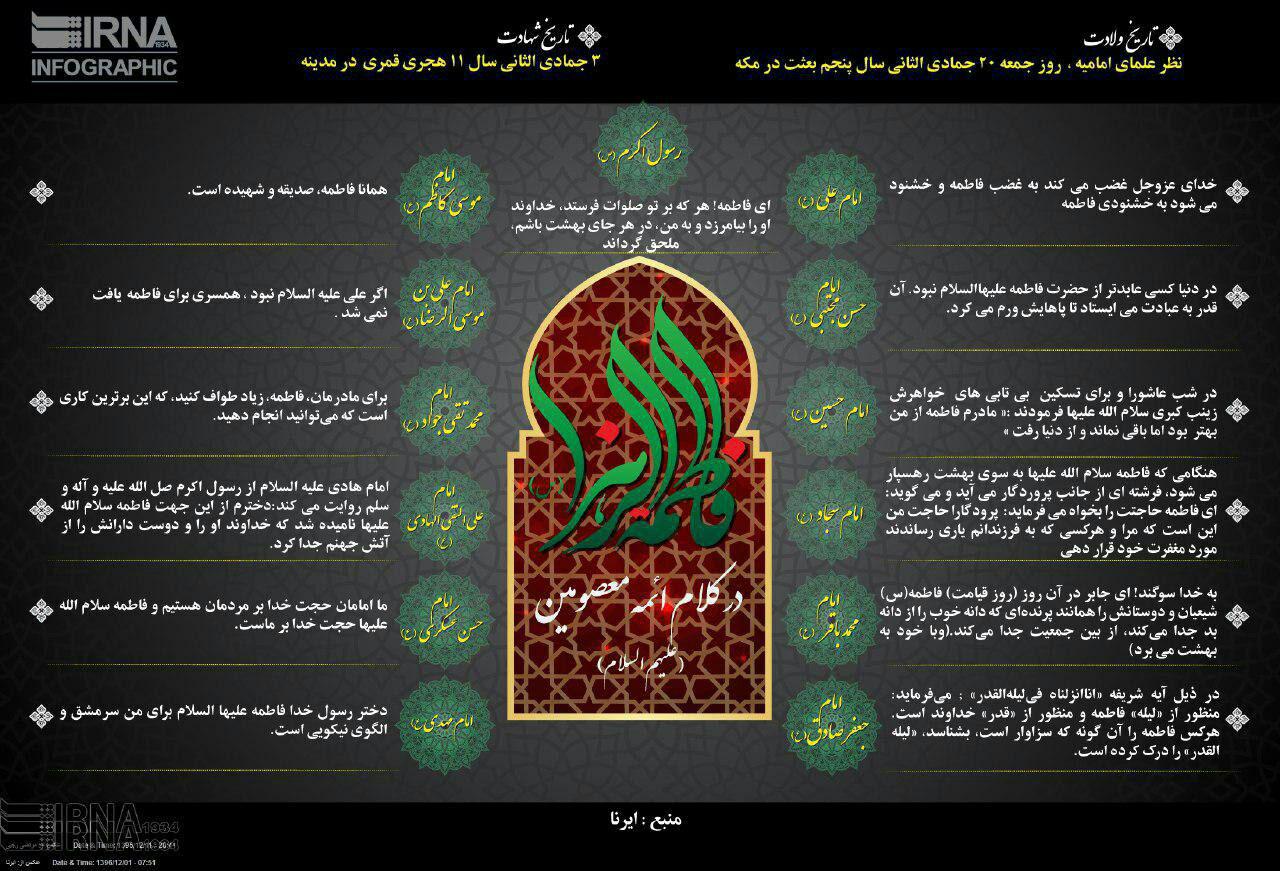 IRNA
1934
INFOGRAPHIC
تاریخ ولادت
نظر علمای امامیه ، روز جمعه ۲۰ جمادی الثانی سال پنجم بعثت در مکه
تاریخ شهادت
۳ جمادی الثانی سال ۱۱ هجری قمری در مدینه
رسول اکرم (س)
ای فاطمه! هر که بر تو صلوات فرستد، خداوند
او را بیامرزد و به من، در هر جای بهشت باشم،
ملحق گرداند
امام علی (ع)
خدای عزوجل غضب می کند به غضب فاطمه و خشنود
می شود به خشنودی فاطمه
امام
حسن مجتبی (ع)
در دنیا کسی عابدتر از حضرت فاطمه علیهاالسلام نبود. آن
قدر به عبادت می ایستاد تا پاهایش ورم می کرد.
امام حسین (ع)
در شب عاشورا و برای تسکین بی تابی های خواهرش
زینب کبری سلام الله علیها فرمودند :« مادرم فاطمه از من
بهتر بود اما باقی نماند و از دنیا رفت »
امام سجاد (ع)
هنگامی که فاطمه سلام الله علیها به سوی بهشت رهسپار
می شود، فرشته ای از جانب پروردگار می آید و می گوید:
ای فاطمه حاجتت را بخواه می فرماید: پرودگارا حاجت من
این است که مرا و هرکسی که به فرزندانم یاری رساندند
مورد مغفرت خود قرار دهی
امام
محمد باقر (ع)
به خدا سوگند! ای جابر در آن روز (روز قیامت) فاطمه(س)
شیعیان و دوستانش را همانند پرنده‌ای که دانه خوب را از دانه
بد جدا می‌کند، از بین جمعیت جدا می‌کند.(وبا خود به
بهشت می برد)
امام
جعفر صادق (ع)
در ذیل آیه شریفه «اناانزلناه فی‌لیله‌القدر» ; می‌فرماید:
منظور از «لیله» فاطمه و منظور از «قدر» خداوند است.
هرکس فاطمه را آن گونه که سزاوار است، بشناسد، «لیله
القدر» را درک کرده است.
امام
موسی کاظم (ع)
همانا فاطمه، صدیقه و شهیده است.
امام علی بن
موسی الرضا (ع)
اگر علی علیه السلام نبود ، همسری برای فاطمه یافت
نمی شد .
امام
محمد تقی جواد (ع)
برای مادرمان، فاطمه، زیاد طواف کنید، که این برترین کاری
است که می‌توانید انجام دهید.
امام
علی النقی الهادی
(ع)
امام هادی علیه السلام از رسول اکرم صل الله علیه و آله و
سلم روایت می کند:دخترم از این جهت فاطمه سلام الله
علیها نامیده شد که خداوند او را و دوست دارانش را از
آتش جهنم جدا کرد.
امام
حسن عسکری (ع)
ما امامان حجت خدا بر مردمان هستیم و فاطمه سلام الله
علیها حجت خدا بر ماست.
امام مهدی (ع)
دختر رسول خدا فاطمه علیها السلام برای من سرمشق و
الگوی نیکویی است.
فاطمة الزهرا (س)
در کلام ائمه معصومین
(علیهم السلام)
منبع : ایرنا
IRNA 1934
عکس از: ایرنا
Date & Time: 1396/12/01 - 07:51